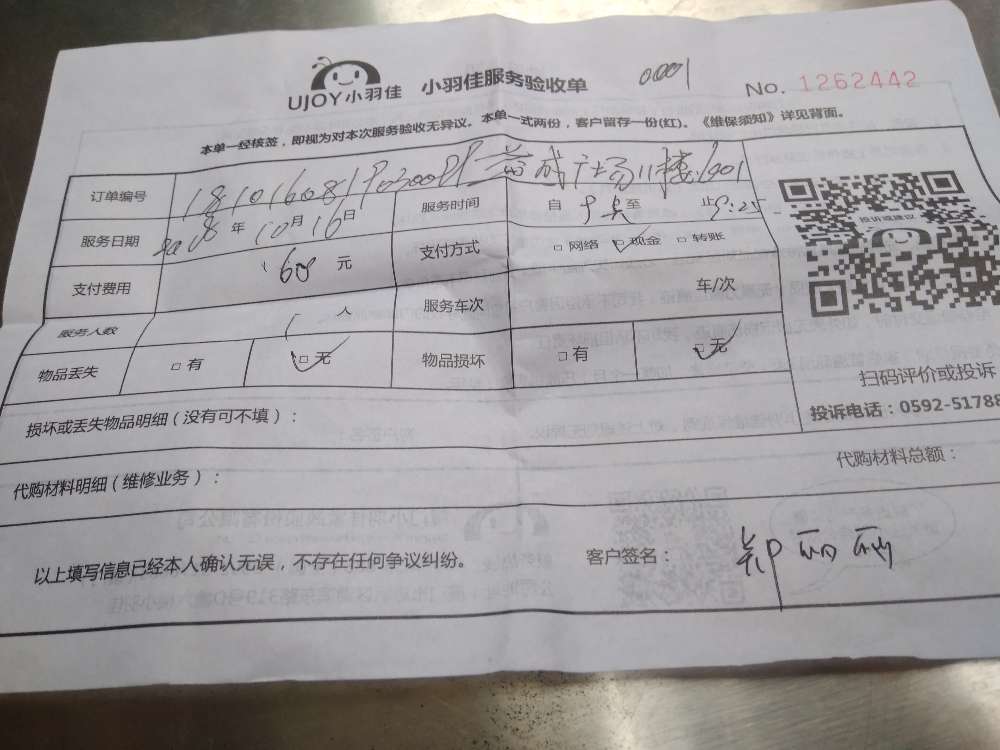 UJOY小羽佳 小羽佳服务验收单 0001 No. 1262442
本单一经核签，即视为对本次服务验收无异议。本单一式两份，客户留存一份(红)。《维保须知》详见背面。
订单编号 益成广场11楼1901
服务日期 2018年10月16日 服务时间 自 至 止9:25
支付费用 168元 支付方式 □网络 ☑现金 □转账
服务人数 1人 服务车次 车/次
物品丢失 □有 ☑无 物品损坏 □有 ☑无
投诉或建议
扫码评价或投诉
投诉电话：0592-51788
损坏或丢失物品明细（没有可不填）：
代购材料明细（维修业务）： 代购材料总额：
以上填写信息已经本人确认无误，不存在任何争议纠纷。 客户签名： 郑丽丽